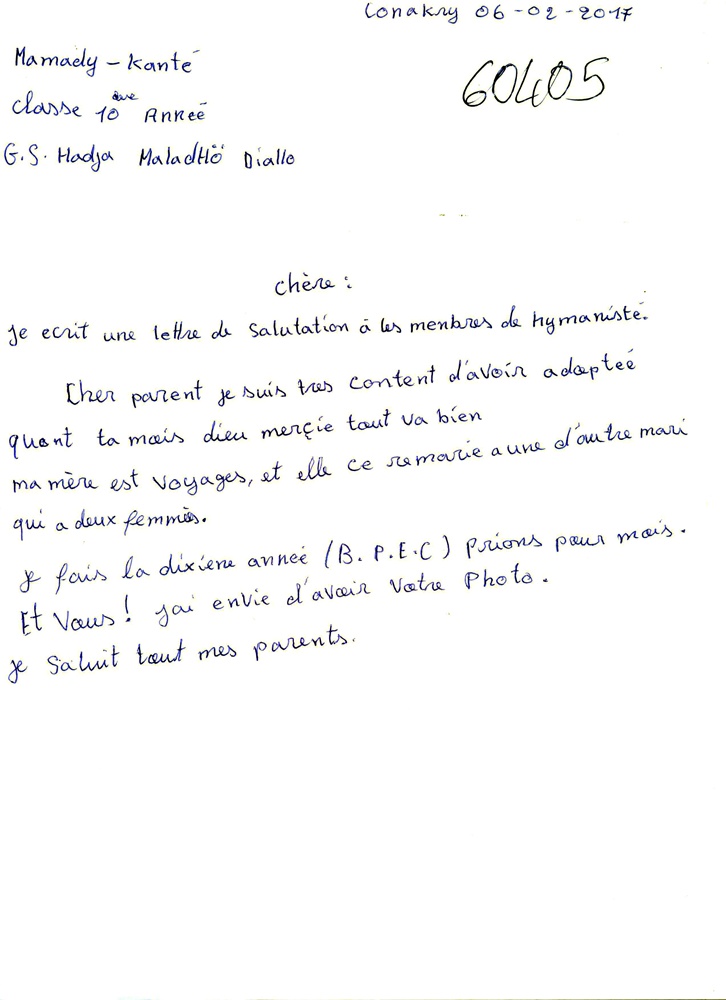 Conakry 06-02-2017
Mamady - Kanté
60405
Classe 10ème Anneé
G.S. Hadja Maladhö Diallo
chère :
Je ecrit une lettre de Salutation à les menbres de hymanisté.
Cher parent je suis tres content d'avoir adopteé
quant ta mois dieu merçie tout va bien
ma mère est voyages, et elle ce remarie a une d'autre mari
qui a deux femmes.
Je fais la dixiene anneé (B.P.E.C) Prions pour mois.
Et Vous ! jai envie d'avoir Votre Photo.
Je Saluit tout mes parents.